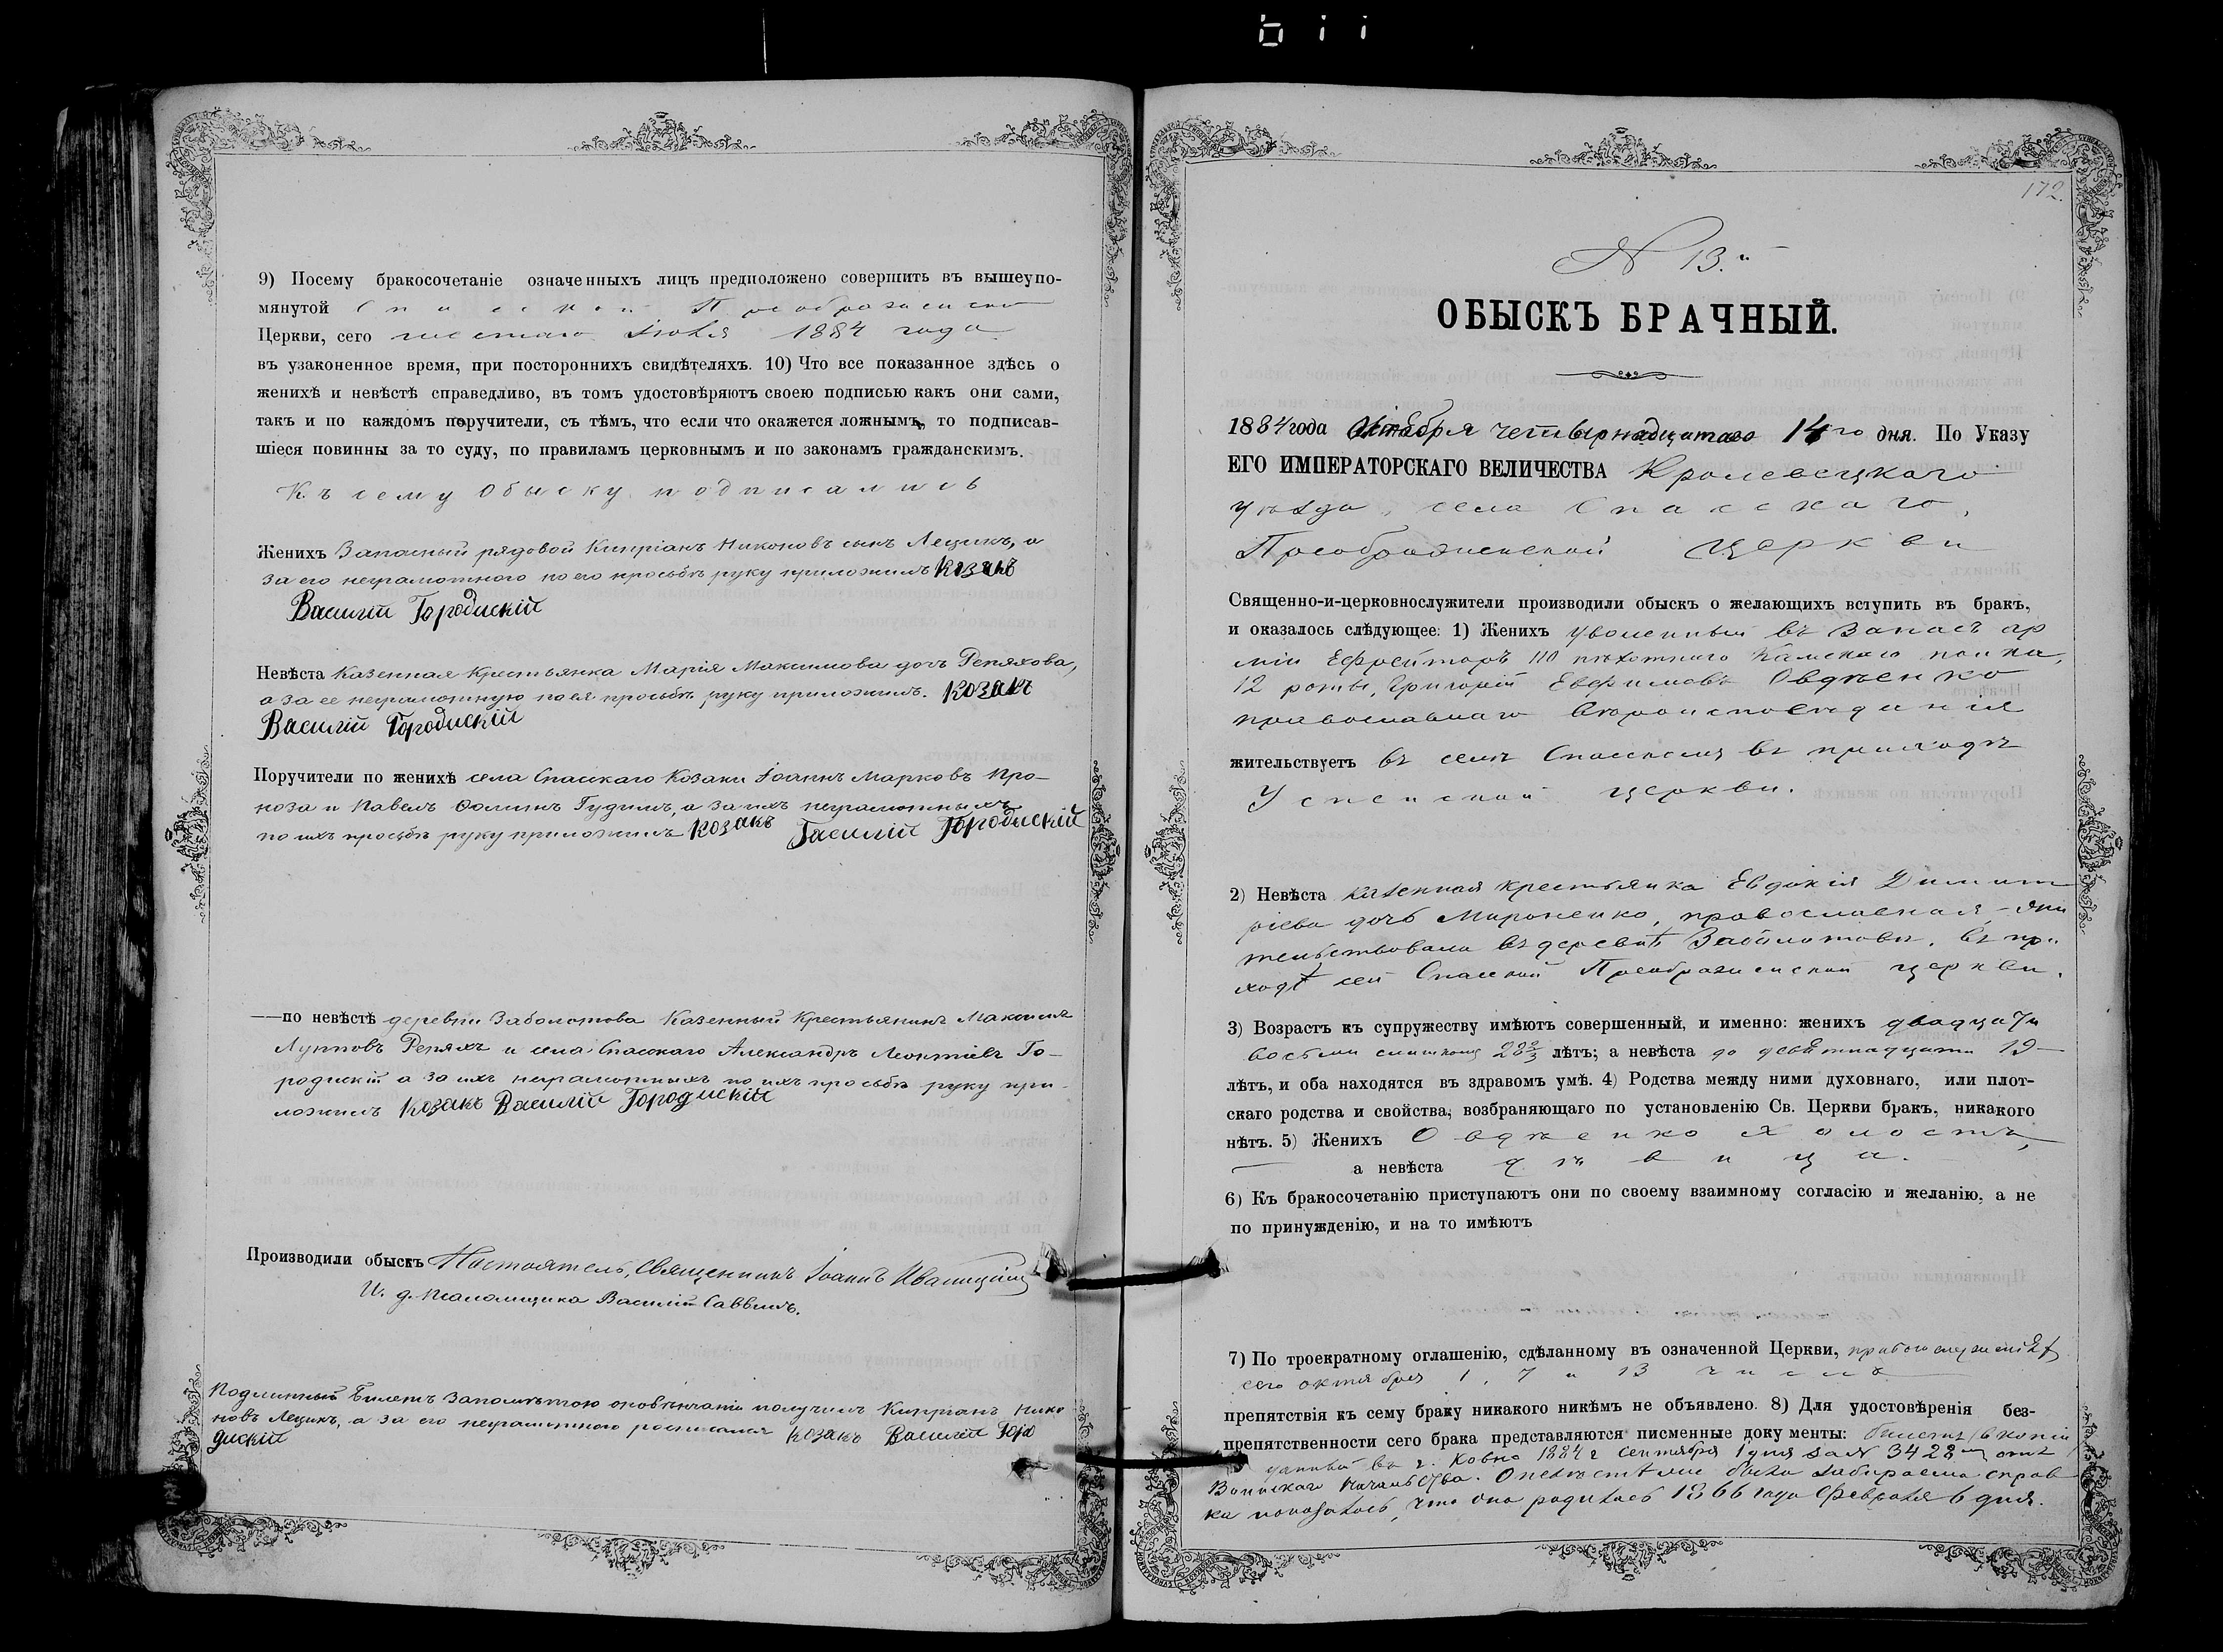 9) Посему бракосочетаніе означенныхъ лицъ предположено совершить въ вышеупо-
мянутой Спасской Преображенской
Церкви, сего шестаго Іюля 1884 года
въ узаконенное время, при постороннихъ свидѣтеляхъ. 10) Что все показанное здѣсь о
женихѣ и невѣстѣ справедливо, въ томъ удостовѣряютъ своею подписью какъ они сами,
такъ и по каждомъ поручители, съ тѣмъ, что если что окажется ложнымъ, то подписав-
шіеся повинны за то суду, по правиламъ церковнымъ и по законамъ гражданскимъ.
Къ сему Обыску подписались
Женихъ Запасный рядовой Кипріанъ Никоновъ сынъ Лецикъ, а
за его неграмотного по его просьбѣ руку приложилъ Козакъ
Василій Городискій
Невѣста Казенная Крестьянка Марія Максимова дочь Репяхова,
а за ее неграмотную по ея просьбѣ руку приложилъ. Козакъ
Василій Городискій
Поручители по женихѣ села Спасскаго Козаки Іоаннъ Марковъ Про-
ноза и Павелъ Ѳоминъ Гудимъ, а за ихъ неграмотныхъ
по ихъ просьбѣ руку приложилъ Козакъ Василій Городискій
—по невѣстѣ деревни Заболотова Казенный Крестьянинъ Максимъ
Лупповъ Репяхъ и села Спасскаго Александръ Леонтіевъ Го-
родискій а за ихъ неграмотныхъ по ихъ просьбѣ руку при-
ложилъ Козакъ Василій Городискій
Производили обыскъ Настоятель, Священникъ Іоаннъ
И. д. Псаломщика Василій Саввинъ.
Подлинный билетъ получилъ Кипріанъ Нико
новъ Лецикъ, а за его неграмотного росписался Козакъ Василій Горо
дискій
172.
N 13.й
ОБЫСКЪ БРАЧНЫЙ.
1884 года Октября четырнадцатаго 14го дня. По Указу
ЕГО ИМПЕРАТОРСКАГО ВЕЛИЧЕСТВА Кролевецкаго
уѣзда, села Спасскаго,
Преображенской Церкви
Священно-и-церковнослужители производили обыскъ о желающихъ вступить въ бракъ,
и оказалось слѣдующее: 1) Женихъ уволенный въ Запасъ ар
міи Ефрейторъ 110 пѣхотнаго Камскаго полка,
12 роты, Григорій Евфимовъ Овдѣенко
православнаго вѣроисповѣданія
жительствуетъ въ селѣ Спасскомъ въ приходѣ
Успенской церкви.
2) Невѣста казенная крестьянка Евдокія Димит
ріева дочь Мироненко, православная, жи
тельствовала въ деревнѣ Заболотовѣ, въ при
ходѣ сей Спасской Преображенской церкви.
3) Возрастъ къ супружеству имѣютъ совершенный, и именно: женихъ двадцати
восьми слишкомъ 28 2/3 лѣтъ; а невѣста до девятнадцати 19—
лѣтъ, и оба находятся въ здравомъ умѣ. 4) Родства между ними духовнаго, или плот-
скаго родства и свойства, возбраняющаго по установленію Св. Церкви бракъ, никакого
нѣтъ. 5) Женихъ Овдѣенко холостъ,
— а невѣста дѣвица.
6) Къ бракосочетанію приступаютъ они по своему взаимному согласію и желанію, а не
по принужденію, и на то имѣютъ
7) По троекратному оглашенію, сдѣланному въ означенной Церкви, при богослуженіи
сего октября 1, 7 и 13 чиселъ
препятствія къ сему браку никакого никѣмъ не объявлено. 8) Для удостовѣренія без-
препятственности сего брака представляются писменные доку менты: билетъ (въ копіи)
данный въ г. Ковно 1884 г сентября 1 дня за N 3428 отъ
Воинскаго начальства. О невѣстѣ была забираема справ
ка показалось, что она родилась 1866 года Февраля 6 дня.